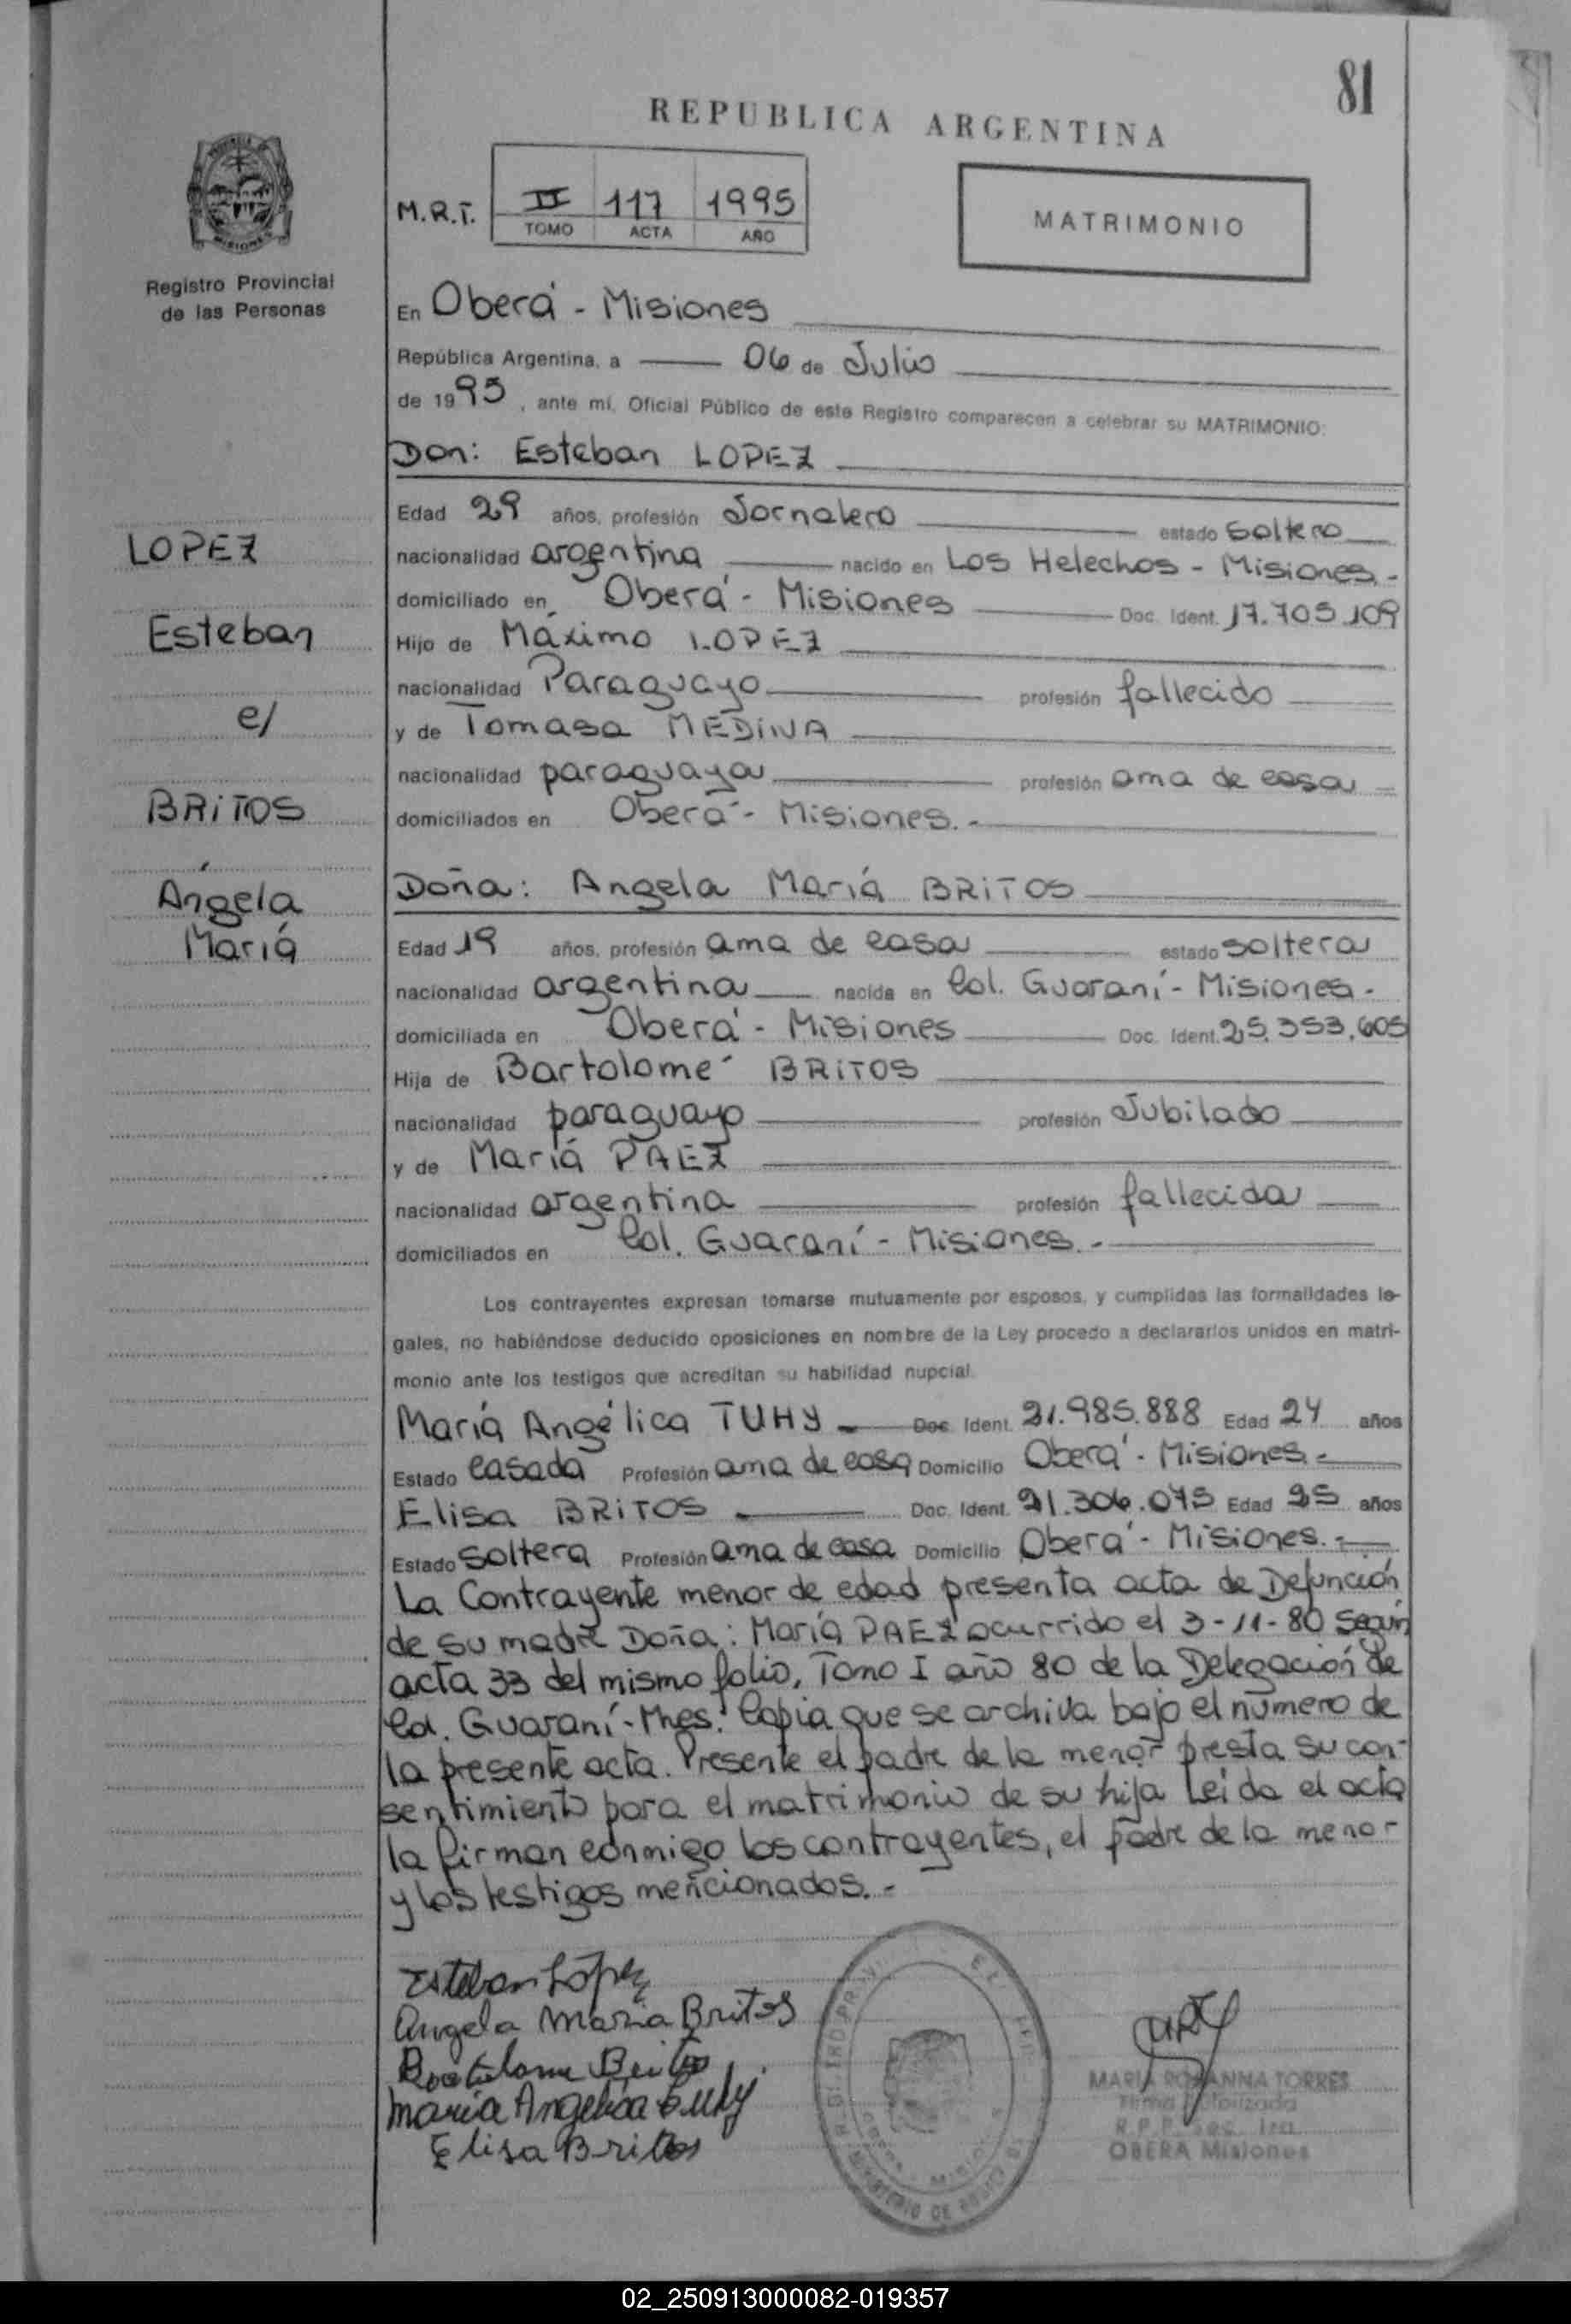 81
REPUBLICA ARGENTINA
MISIONES
Registro Provincial
de las Personas
M.R.T. II 117 1995
TOMO ACTA AÑO
MATRIMONIO
En Oberá - Misiones
República Argentina, a 06 de Julio
de 1995, ante mí, Oficial Público de este Registro comparecen a celebrar su MATRIMONIO:
Don: Esteban LOPEZ
Edad 29 años, profesión Jornalero estado soltero
nacionalidad argentina nacido en Los Helechos - Misiones.-
domiciliado en Oberá - Misiones Doc. Ident. 17.705.109
Hijo de Máximo LOPEZ
nacionalidad Paraguayo profesión fallecido
y de Tomasa MEDiNA
nacionalidad paraguaya profesión ama de casa
domiciliados en Oberá - Misiones.-
LOPEZ
Esteban
c/
BRiTOS
Ángela
María
Doña: Angela María BRiTOS
Edad 19 años, profesión ama de casa estado soltera
nacionalidad argentina nacida en Col. Guaraní - Misiones.-
domiciliada en Oberá - Misiones Doc. Ident. 25.353.605
Hija de Bartolomé BRiTOS
nacionalidad paraguayo profesión Jubilado
y de María PAEZ
nacionalidad argentina profesión fallecida
domiciliados en Col. Guaraní - Misiones.-
Los contrayentes expresan tomarse mutuamente por esposos, y cumplidas las formalidades le-
gales, no habiéndose deducido oposiciones en nombre de la Ley procedo a declararlos unidos en matri-
monio ante los testigos que acreditan su habilidad nupcial.
María Angélica TUHY Doc. Ident. 21.985.888 Edad 24 años
Estado casada Profesión ama de casa Domicilio Oberá - Misiones.-
Elisa BRiTOS Doc. Ident. 21.306.075 Edad 25 años
Estado soltera Profesión ama de casa Domicilio Oberá - Misiones.-
La Contrayente menor de edad presenta acta de Defunción
de su madre Doña: María PAEZ ocurrido el 3-11-80 según
acta 33 del mismo folio, Tomo I año 80 de la Delegación de
Col. Guaraní - Mnes. Copia que se archiva bajo el número de
la presente acta. Presente el padre de la menor presta su con-
sentimiento para el matrimonio de su hija Leída el acta
la firman conmigo los contrayentes, el padre de la menor
y los testigos mencionados.-
Esteban López
Angela Maria Britos
Bartolome Britos
Maria Angelica Tuhy
Elisa Britos
MARIA ROSANNA TORRES
Firma Autorizada
R.P.P. Sec. 1ra.
OBERA Misiones
02_250913000082-019357